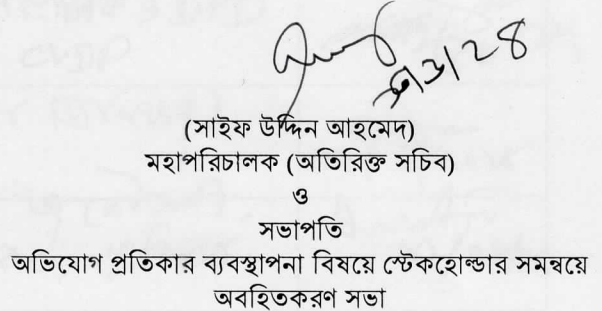 (সাইফ উদ্দিন আহমেদ)
মহাপরিচালক (অতিরিক্ত সচিব)
ও
সভাপতি
অভিযোগ প্রতিকার ব্যবস্থাপনা বিষয়ে স্টেকহোল্ডার সমন্বয়ে
অবহিতকরণ সভা